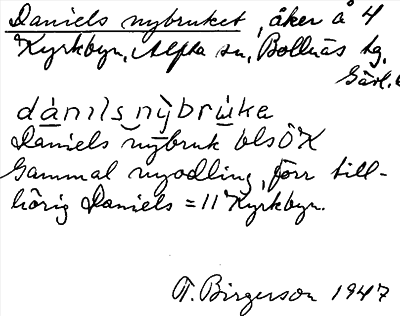 Daniels nybruket, åker å 4
Kyrkbyn, Alfta sn, Bollnäs tg,
Gävl.
dànilsnỳbrùka
Daniels nybruk bls ÖK
Gammal nyodling, förr till-
hörig Daniels = 11 Kyrkbyn.
T. Birgerson 1947